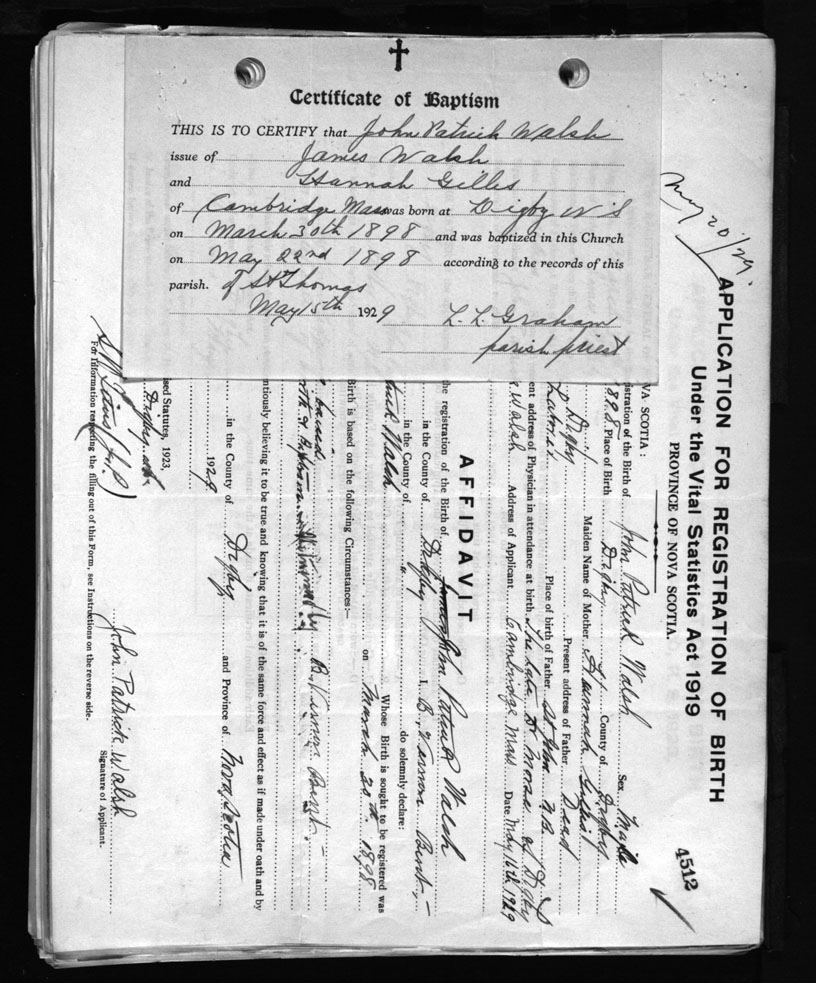 Certificate of Baptism
THIS IS TO CERTIFY that John Patrick Walsh
issue of James Walsh
and Hannah Gilles
of Cambridge Mass was born at Digby N S
on March 30th 1898 and was baptized in this Church
on May 22nd 1898 according to the records of this
parish. of St Thomas
May 15th 1929 L. L. Graham
parish priest
May 20/29.
4512
APPLICATION FOR REGISTRATION OF BIRTH
Under the Vital Statistics Act 1919
PROVINCE OF NOVA SCOTIA.
VA SCOTIA:
istration of the Birth of John Patrick Walsh Sex Male
898 Place of Birth Digby County of Digby
Maiden Name of Mother Hannah
Digby Present address of Father Dead
Place of birth of Father St John N.B.
ent address of Physician in attendance at birth The Late Dr Morse of Digby
Walsh Address of Applicant Cambridge Mass Date May 16th 1929
AFFIDAVIT
he registration of the Birth of John Patrick Walsh
in the County of Digby I, B. Vernon
in the County of " do solemnly declare:
Walsh Whose Birth is sought to be registered was
on March 30th 1898
Birth is based on the following Circumstances:—
B. Vernon
ntiously believing it to be true and knowing that it is of the same force and effect as if made under oath and by
ised Statutes, 1923,
Digby
in the County of Digby and Province of Nova Scotia
1929
(J.P.)
John Patrick Walsh
Signature of Applicant.
For information regarding the filling out of this Form, see Instructions on the reverse side.